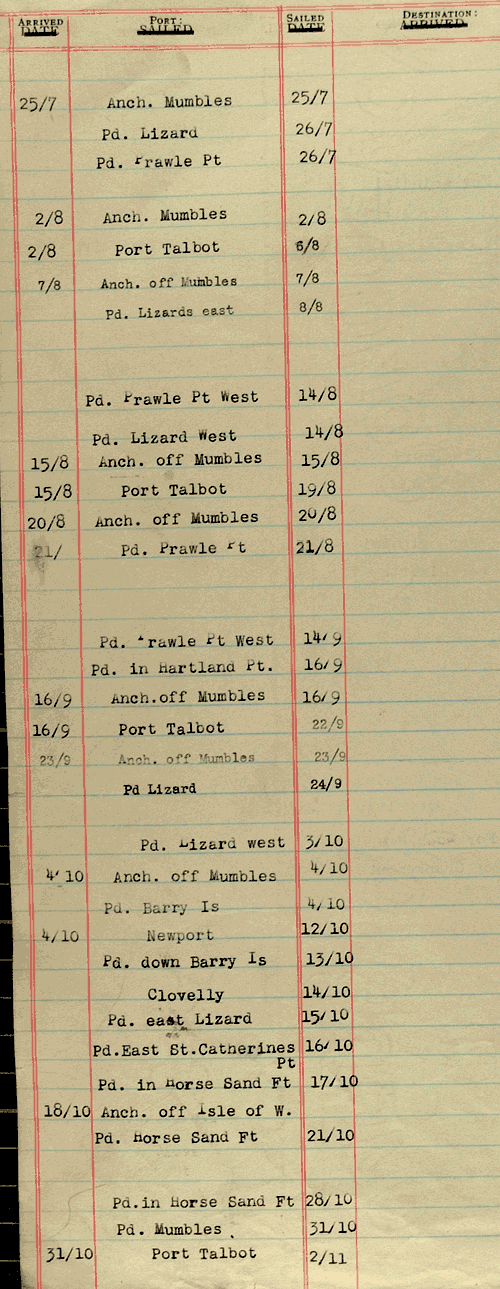 ARRIVED PORT: SAILED DESTINATION:
DATE SAILED DATE ARRIVED
25/7 Anch. Mumbles 25/7
Pd. Lizard 26/7
Pd. Prawle Pt 26/7
2/8 Anch. Mumbles 2/8
2/8 Port Talbot 6/8
7/8 Anch. off Mumbles 7/8
Pd. Lizards east 8/8
Pd. Prawle Pt West 14/8
Pd. Lizard West 14/8
15/8 Anch. off Mumbles 15/8
15/8 Port Talbot 19/8
20/8 Anch. off Mumbles 20/8
21/ Pd. Prawle Pt 21/8
Pd. Prawle Pt West 14/9
Pd. in Hartland Pt. 16/9
16/9 Anch.off Mumbles 16/9
16/9 Port Talbot 22/9
23/9 Anch. off Mumbles 23/9
Pd Lizard 24/9
Pd. Lizard west 3/10
4/10 Anch. off Mumbles 4/10
Pd. Barry Is 4/10
4/10 Newport 12/10
Pd. down Barry Is 13/10
Clovelly 14/10
Pd. east Lizard 15/10
Pd.East St.Catherines 16/10
Pt
Pd. in Horse Sand Ft 17/10
18/10 Anch. off Isle of W.
Pd. Horse Sand Ft 21/10
Pd.in Horse Sand Ft 28/10
Pd. Mumbles 31/10
31/10 Port Talbot 2/11